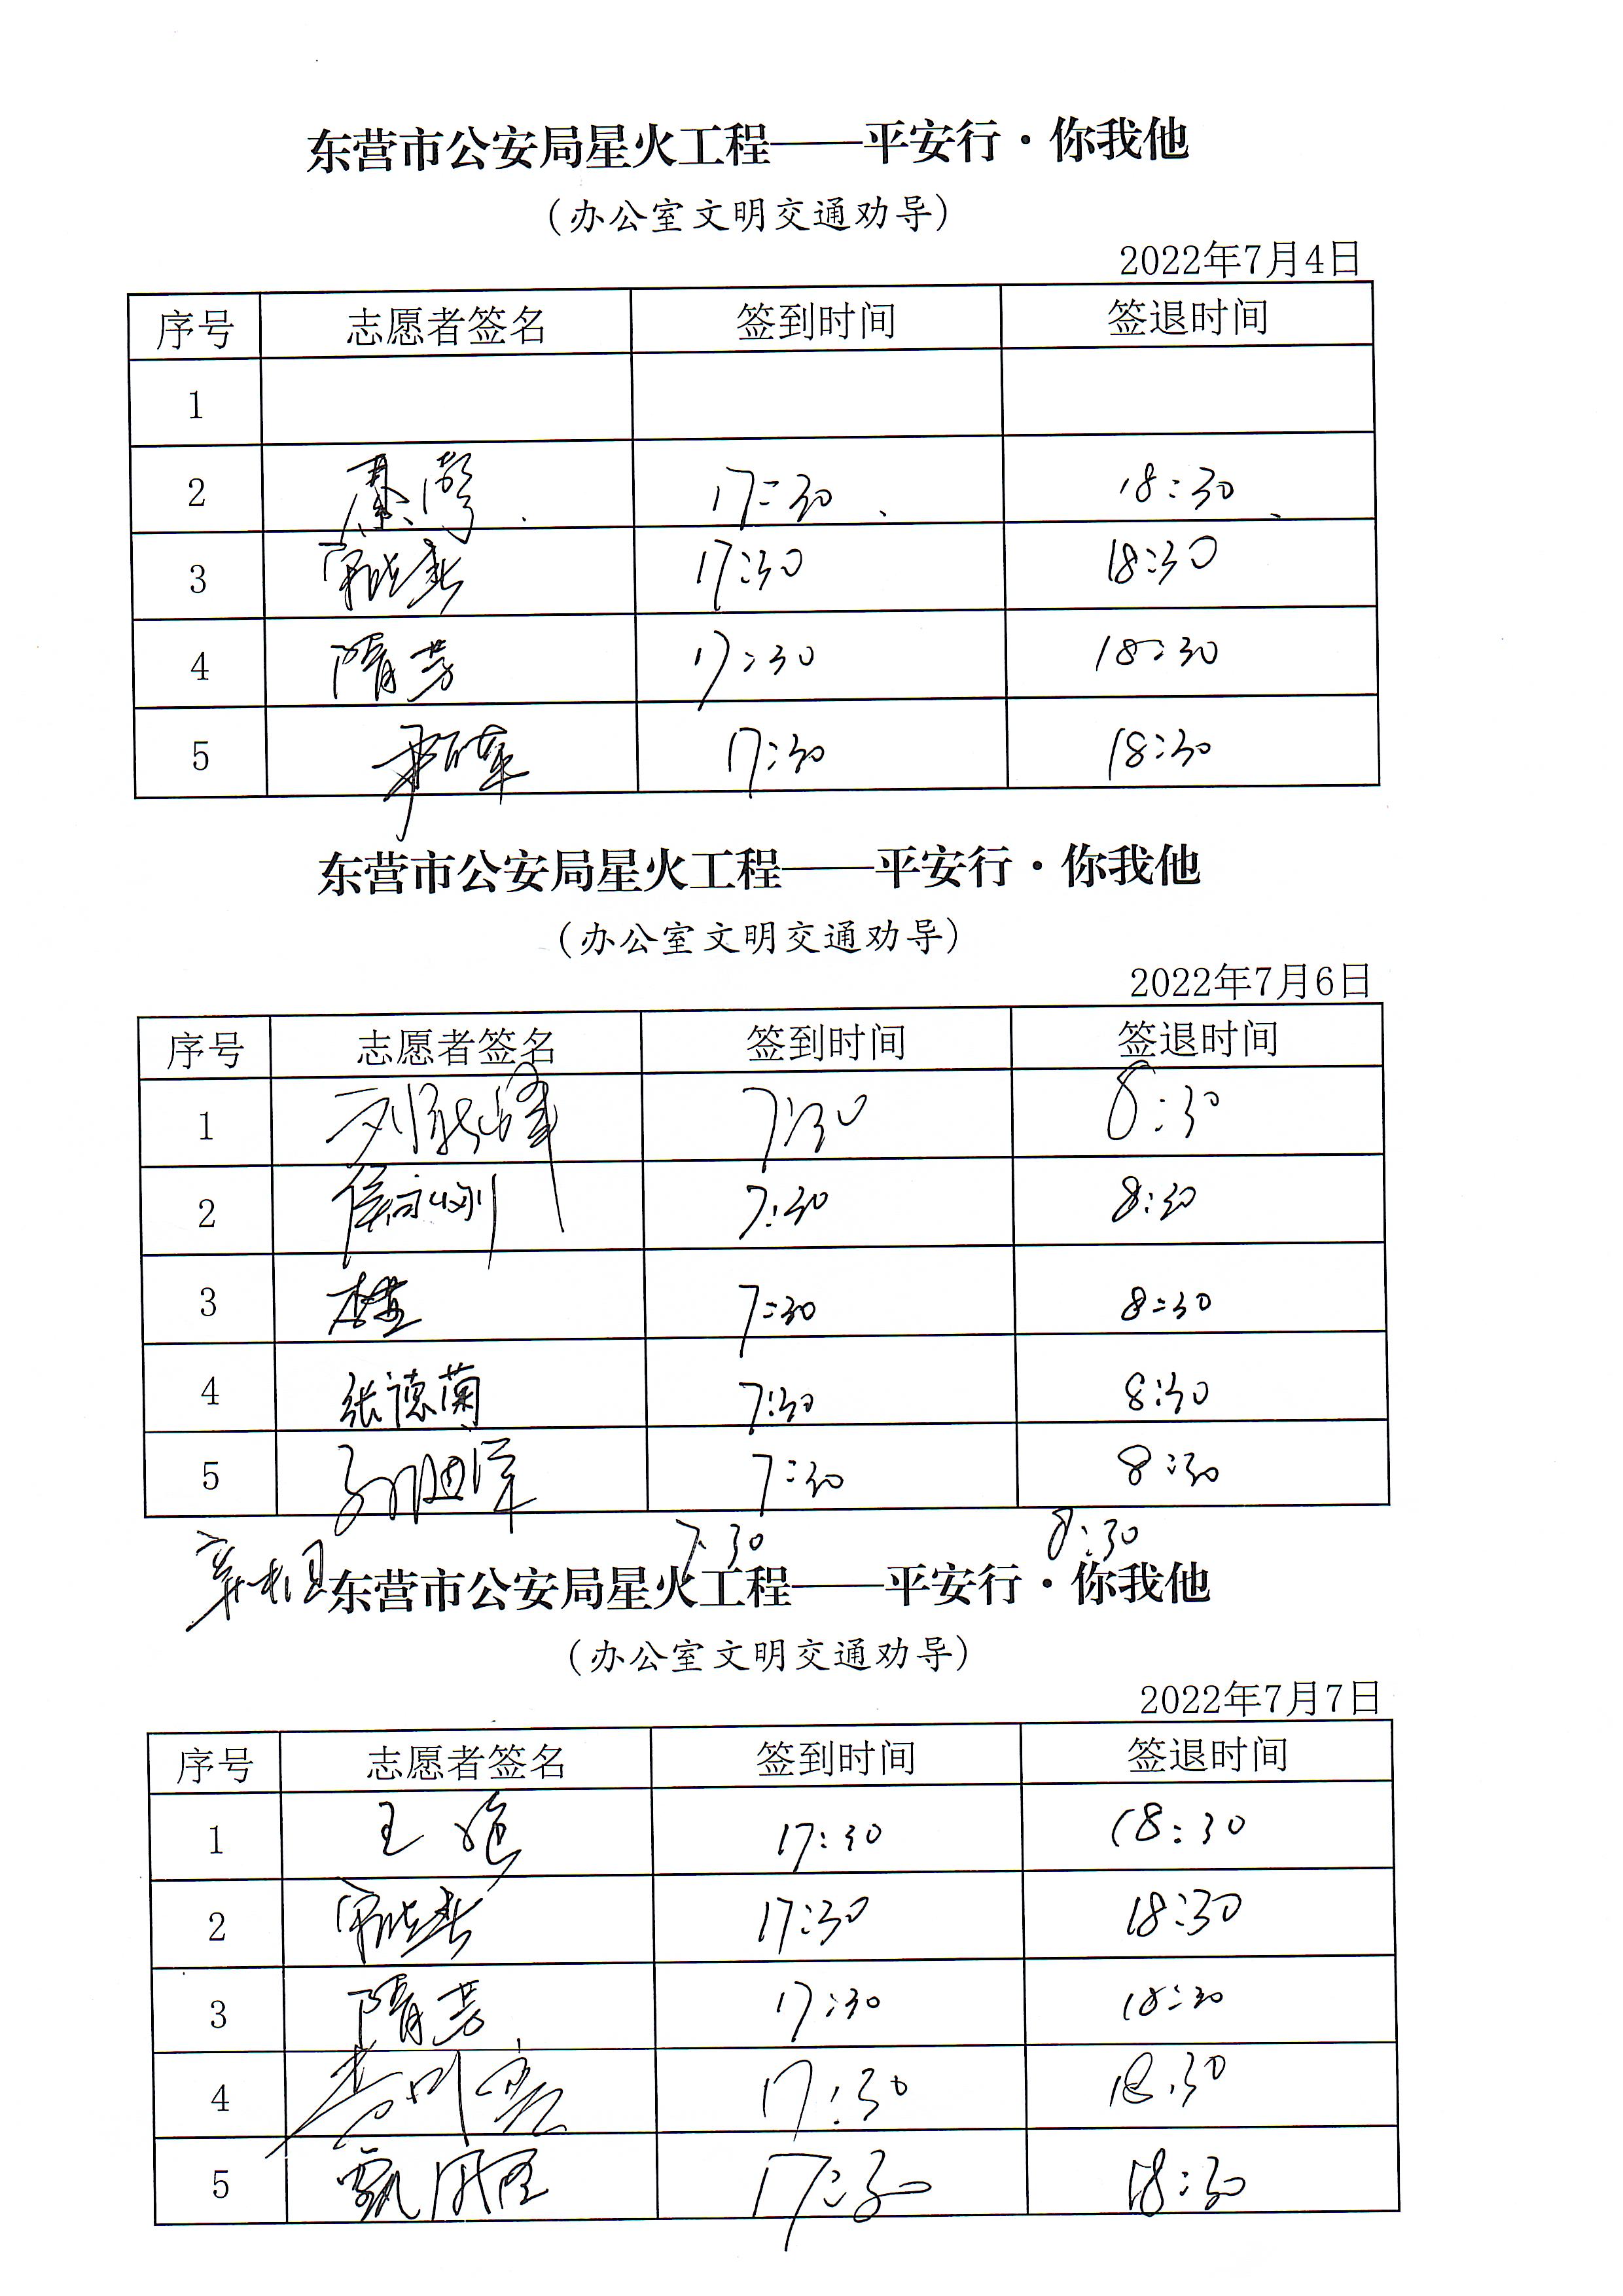 东营市公安局星火工程——平安行·你我他
(办公室文明交通劝导)
2022年7月4日
序号 志愿者签名 签到时间 签退时间
1
2 17:30 18:30
3 17:30 18:30
4 隋芳 17:30 18:30
5 17:30 18:30
东营市公安局星火工程——平安行·你我他
(办公室文明交通劝导)
2022年7月6日
序号 志愿者签名 签到时间 签退时间
1 7:30 8:30
2 7:30 8:30
3 7:30 8:30
4 张德菊 7:30 8:30
5 7:30 8:30
7:30 8:30
东营市公安局星火工程——平安行·你我他
(办公室文明交通劝导)
2022年7月7日
序号 志愿者签名 签到时间 签退时间
1 王艳 17:30 18:30
2 17:30 18:30
3 隋芳 17:30 18:30
4 17:30 18:30
5 17:30 18:30